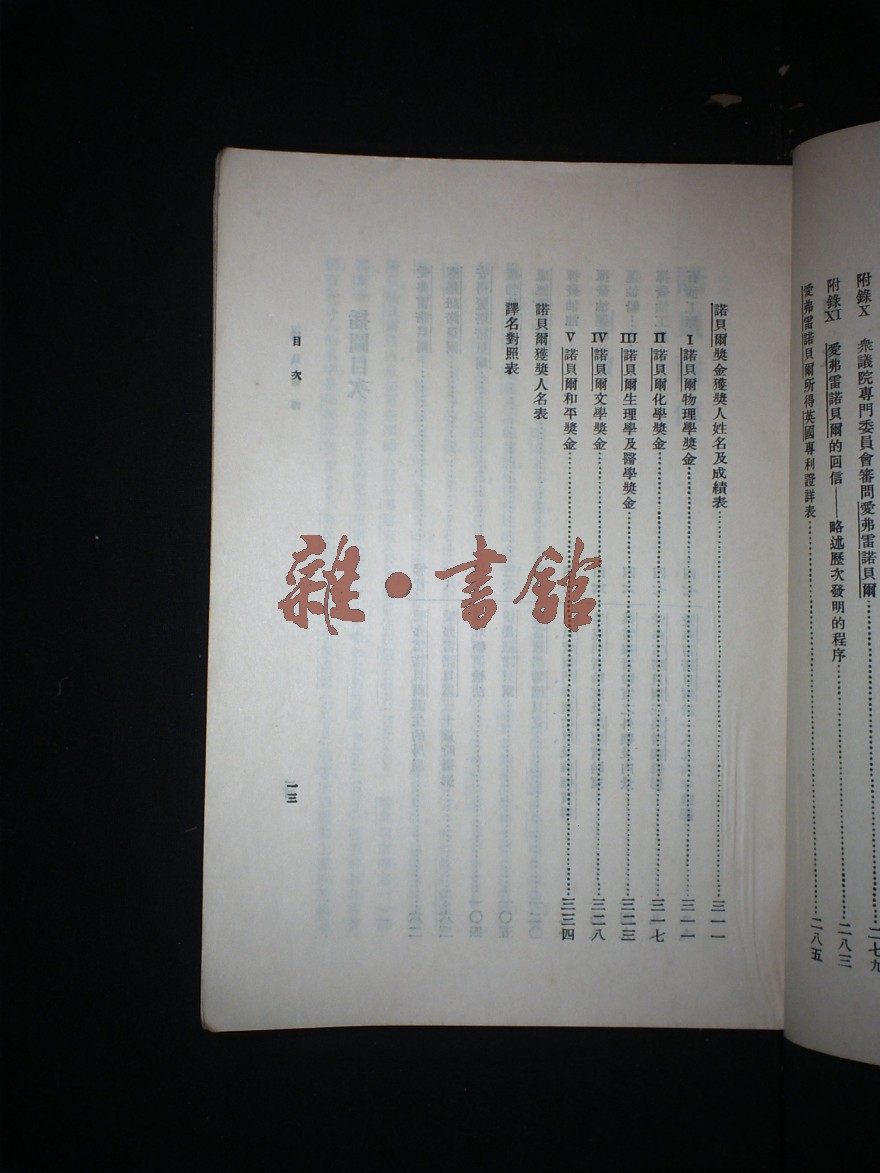 附錄X 衆議院專門委員會審問愛弗雷諾貝爾……二七九
附錄XI 愛弗雷諾貝爾的回信——略述歷次發明的程序……二八三
愛弗雷諾貝爾所得英國專利證詳表……二八五
諾貝爾獎金獲獎人姓名及成績表……三一一
I 諾貝爾物理學獎金……三一一
II 諾貝爾化學獎金……三一七
III 諾貝爾生理學及醫學獎金……三二三
IV 諾貝爾文學獎金……三二八
V 諾貝爾和平獎金……三三四
諾貝爾獲獎人名表
譯名對照表
目次
一三
雜·書館